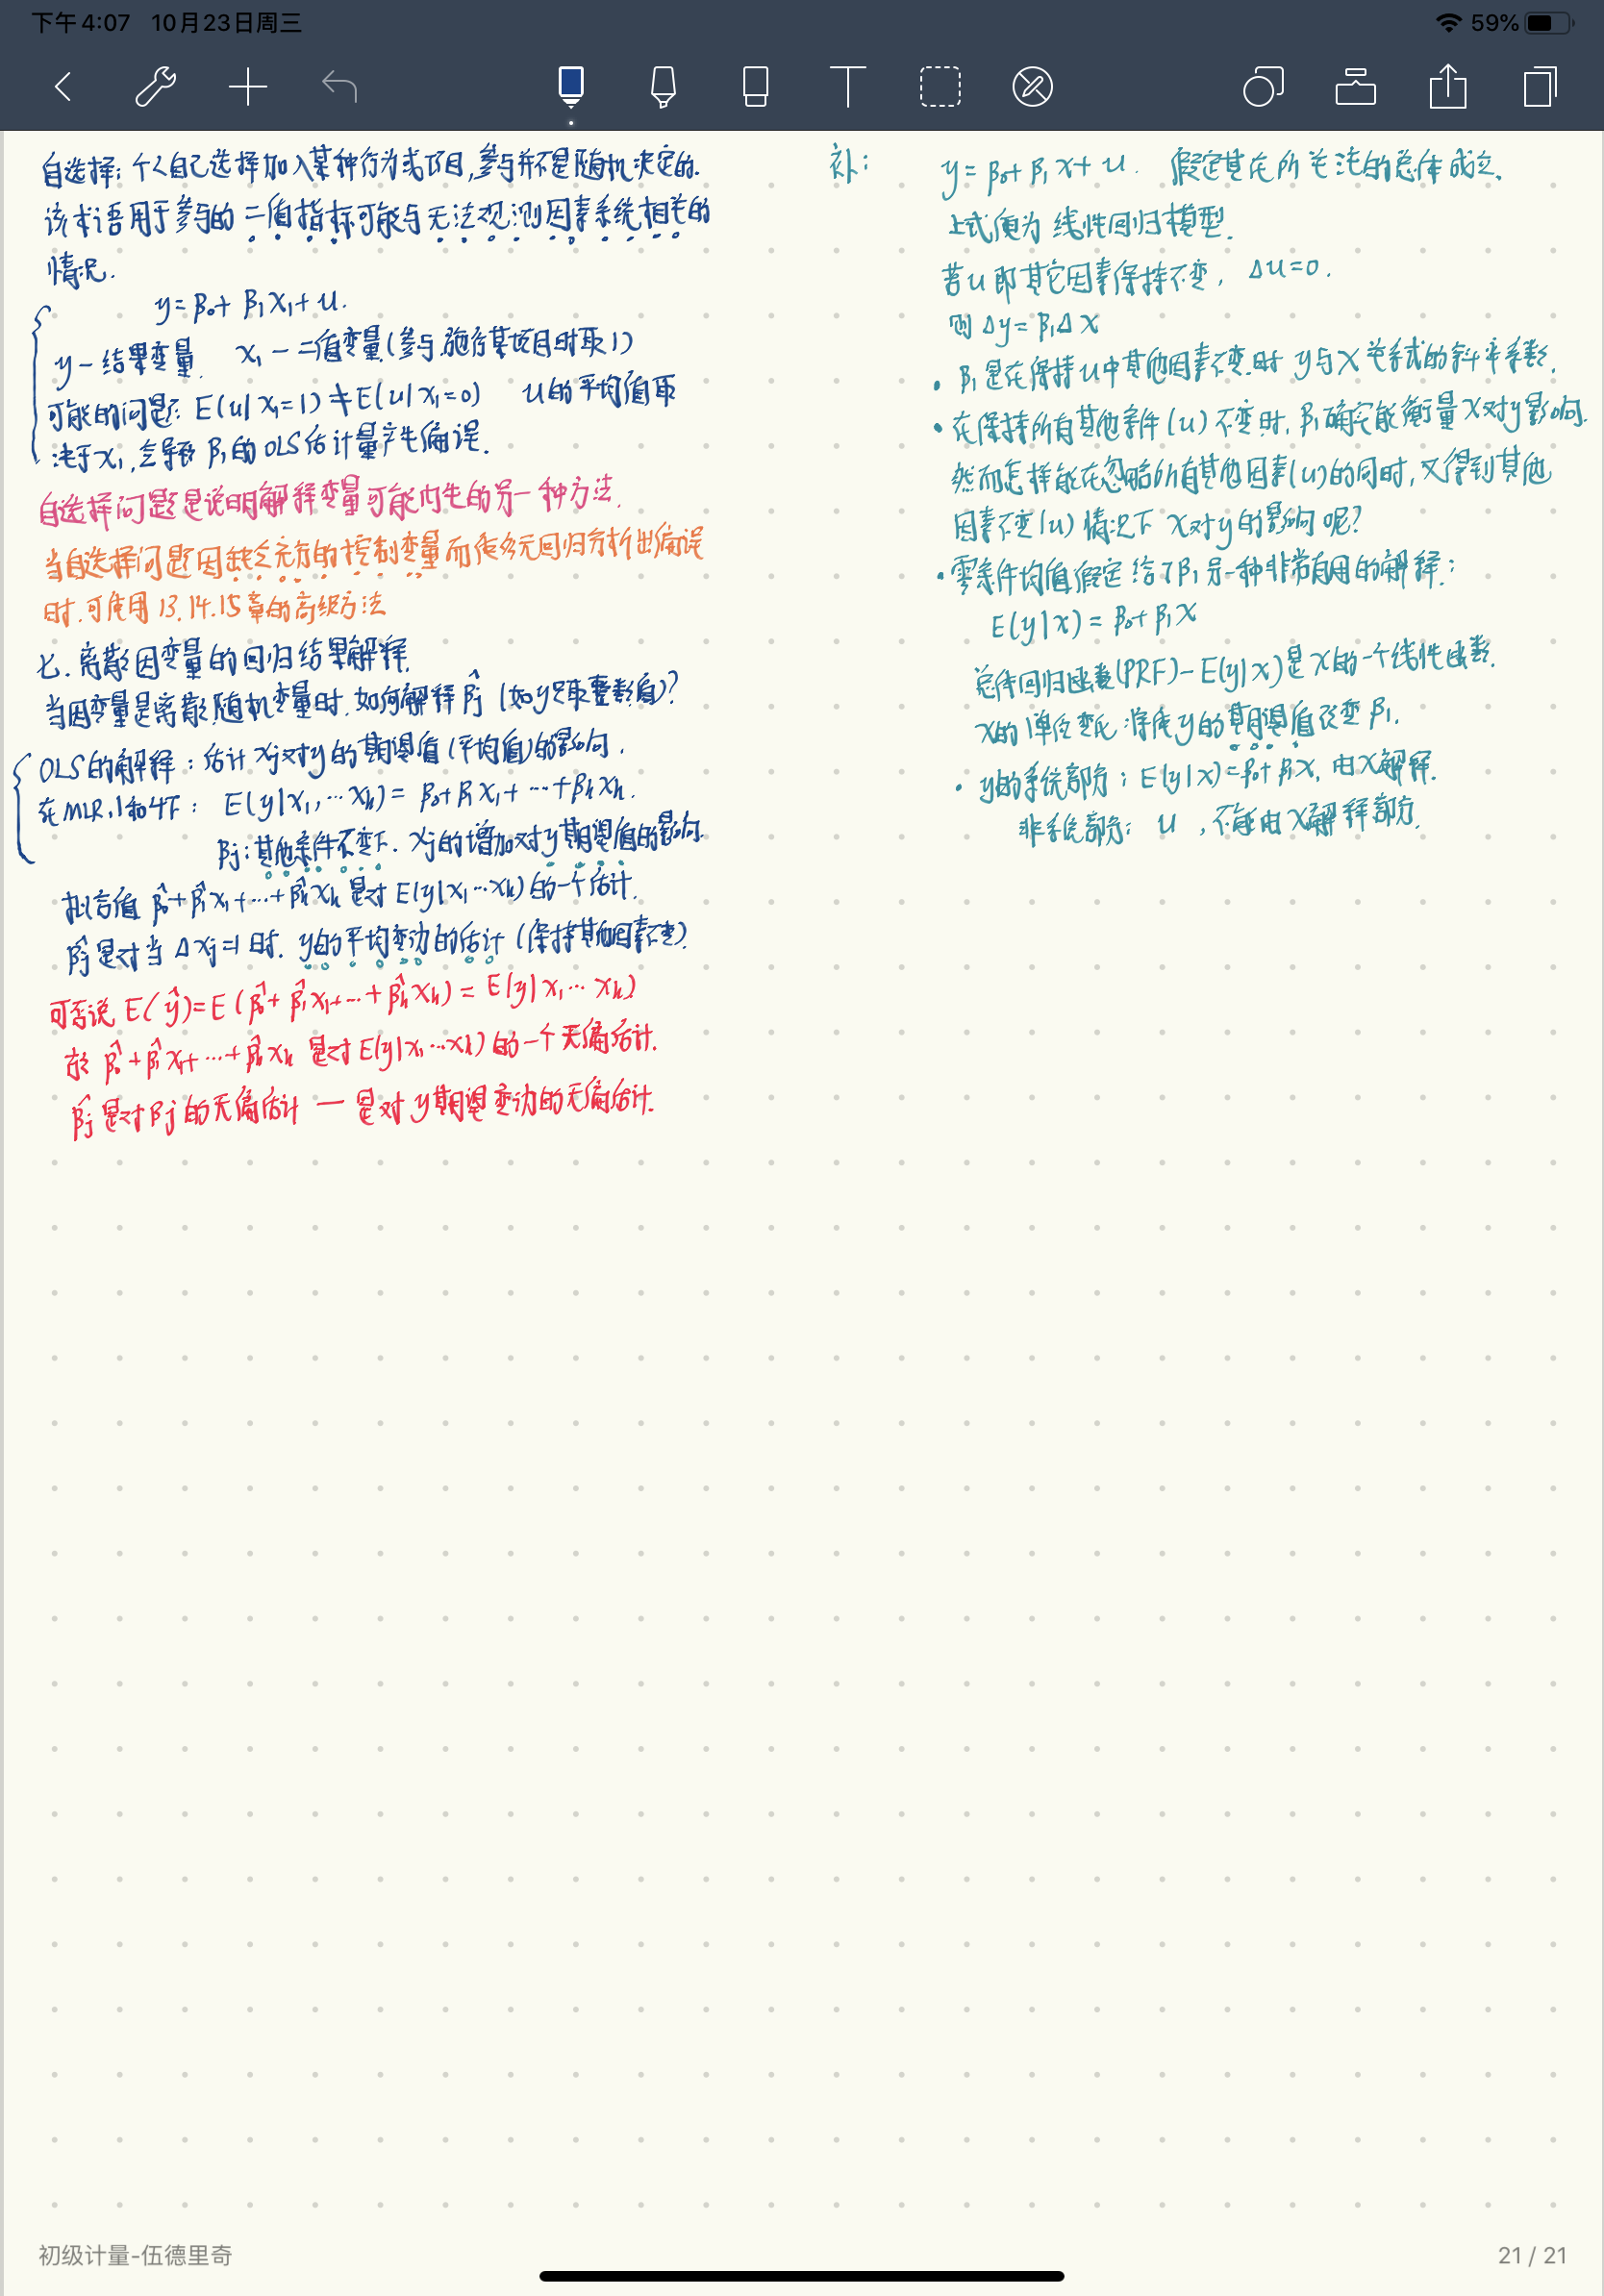 下午4:07 10月23日周三
59%
自选择：个人自己选择加入某种行为或项目,参与并不是随机决定的.
该术语用于参与的二值指标可能与无法观测因素系统相关的
情况.
y=β₀+β₁x₁+u.
y-结果变量. x₁-二值变量(参与.施行某项目时取1)
可能的问题: E(u|x₁=1)≠E(u|x₁=0) u的平均值取
决于x₁,会导致β₁的OLS估计量产生偏误.
自选择问题是说明解释变量可能内生的另一种方法.
当自选择问题因缺乏充方的控制变量而使多元回归分析出偏误
时.可使用13.14.15章的高级方法
七.离散因变量的回归结果解释.
当因变量是离散随机变量时.如何解释β̂j (如y只取整数值)?
OLS的解释：估计xj对y的期望值(平均值)的影响.
在MLR.1和4下: E(y|x₁,…xk)=β₀+β₁x₁+…+βkxk.
βj:其他条件不变下.xj的增加对y期望值的影响.
拟合值β̂₀+β̂₁x₁+…+β̂kxk是对E(y|x₁…xk)的一个估计.
β̂j是对当Δxj=1时.y的平均变动的估计(保持其他因素不变).
可否说E(ŷ)=E(β̂₀+β̂₁x₁+…+β̂kxk)=E(y|x₁…xk)
β̂₀+β̂₁x₁+…+β̂kxk是对E(y|x₁…xk)的一个无偏估计.
β̂j是对βj的无偏估计—是对y期望变动的无偏估计.
补：
y=β₀+β₁x+u. 假定其在所关注的总体成立.
上式便为线性回归模型.
若u即其它因素保持不变, Δu=0.
则Δy=β₁Δx
·β₁是在保持u中其他因素不变.时y与x关系式的斜率系数.
·在保持所有其他条件(u)不变时,β₁确实能衡量x对y影响.
然而怎样能在忽略所有其他因素(u)的同时,又得到其他
因素不变(u)情况下x对y的影响呢?
·零条件均值假定给了β₁另一种非常有用的解释:
E(y|x)=β₀+β₁x
总体回归函数(PRF)-E(y|x)是x的一个线性函数.
x的1单位变化将使y的期望值改变β₁.
·y的系统部分：E(y|x)=β₀+β₁x,由x解释.
非系统部分：u,不能由x解释部分.
初级计量-伍德里奇
21 / 21